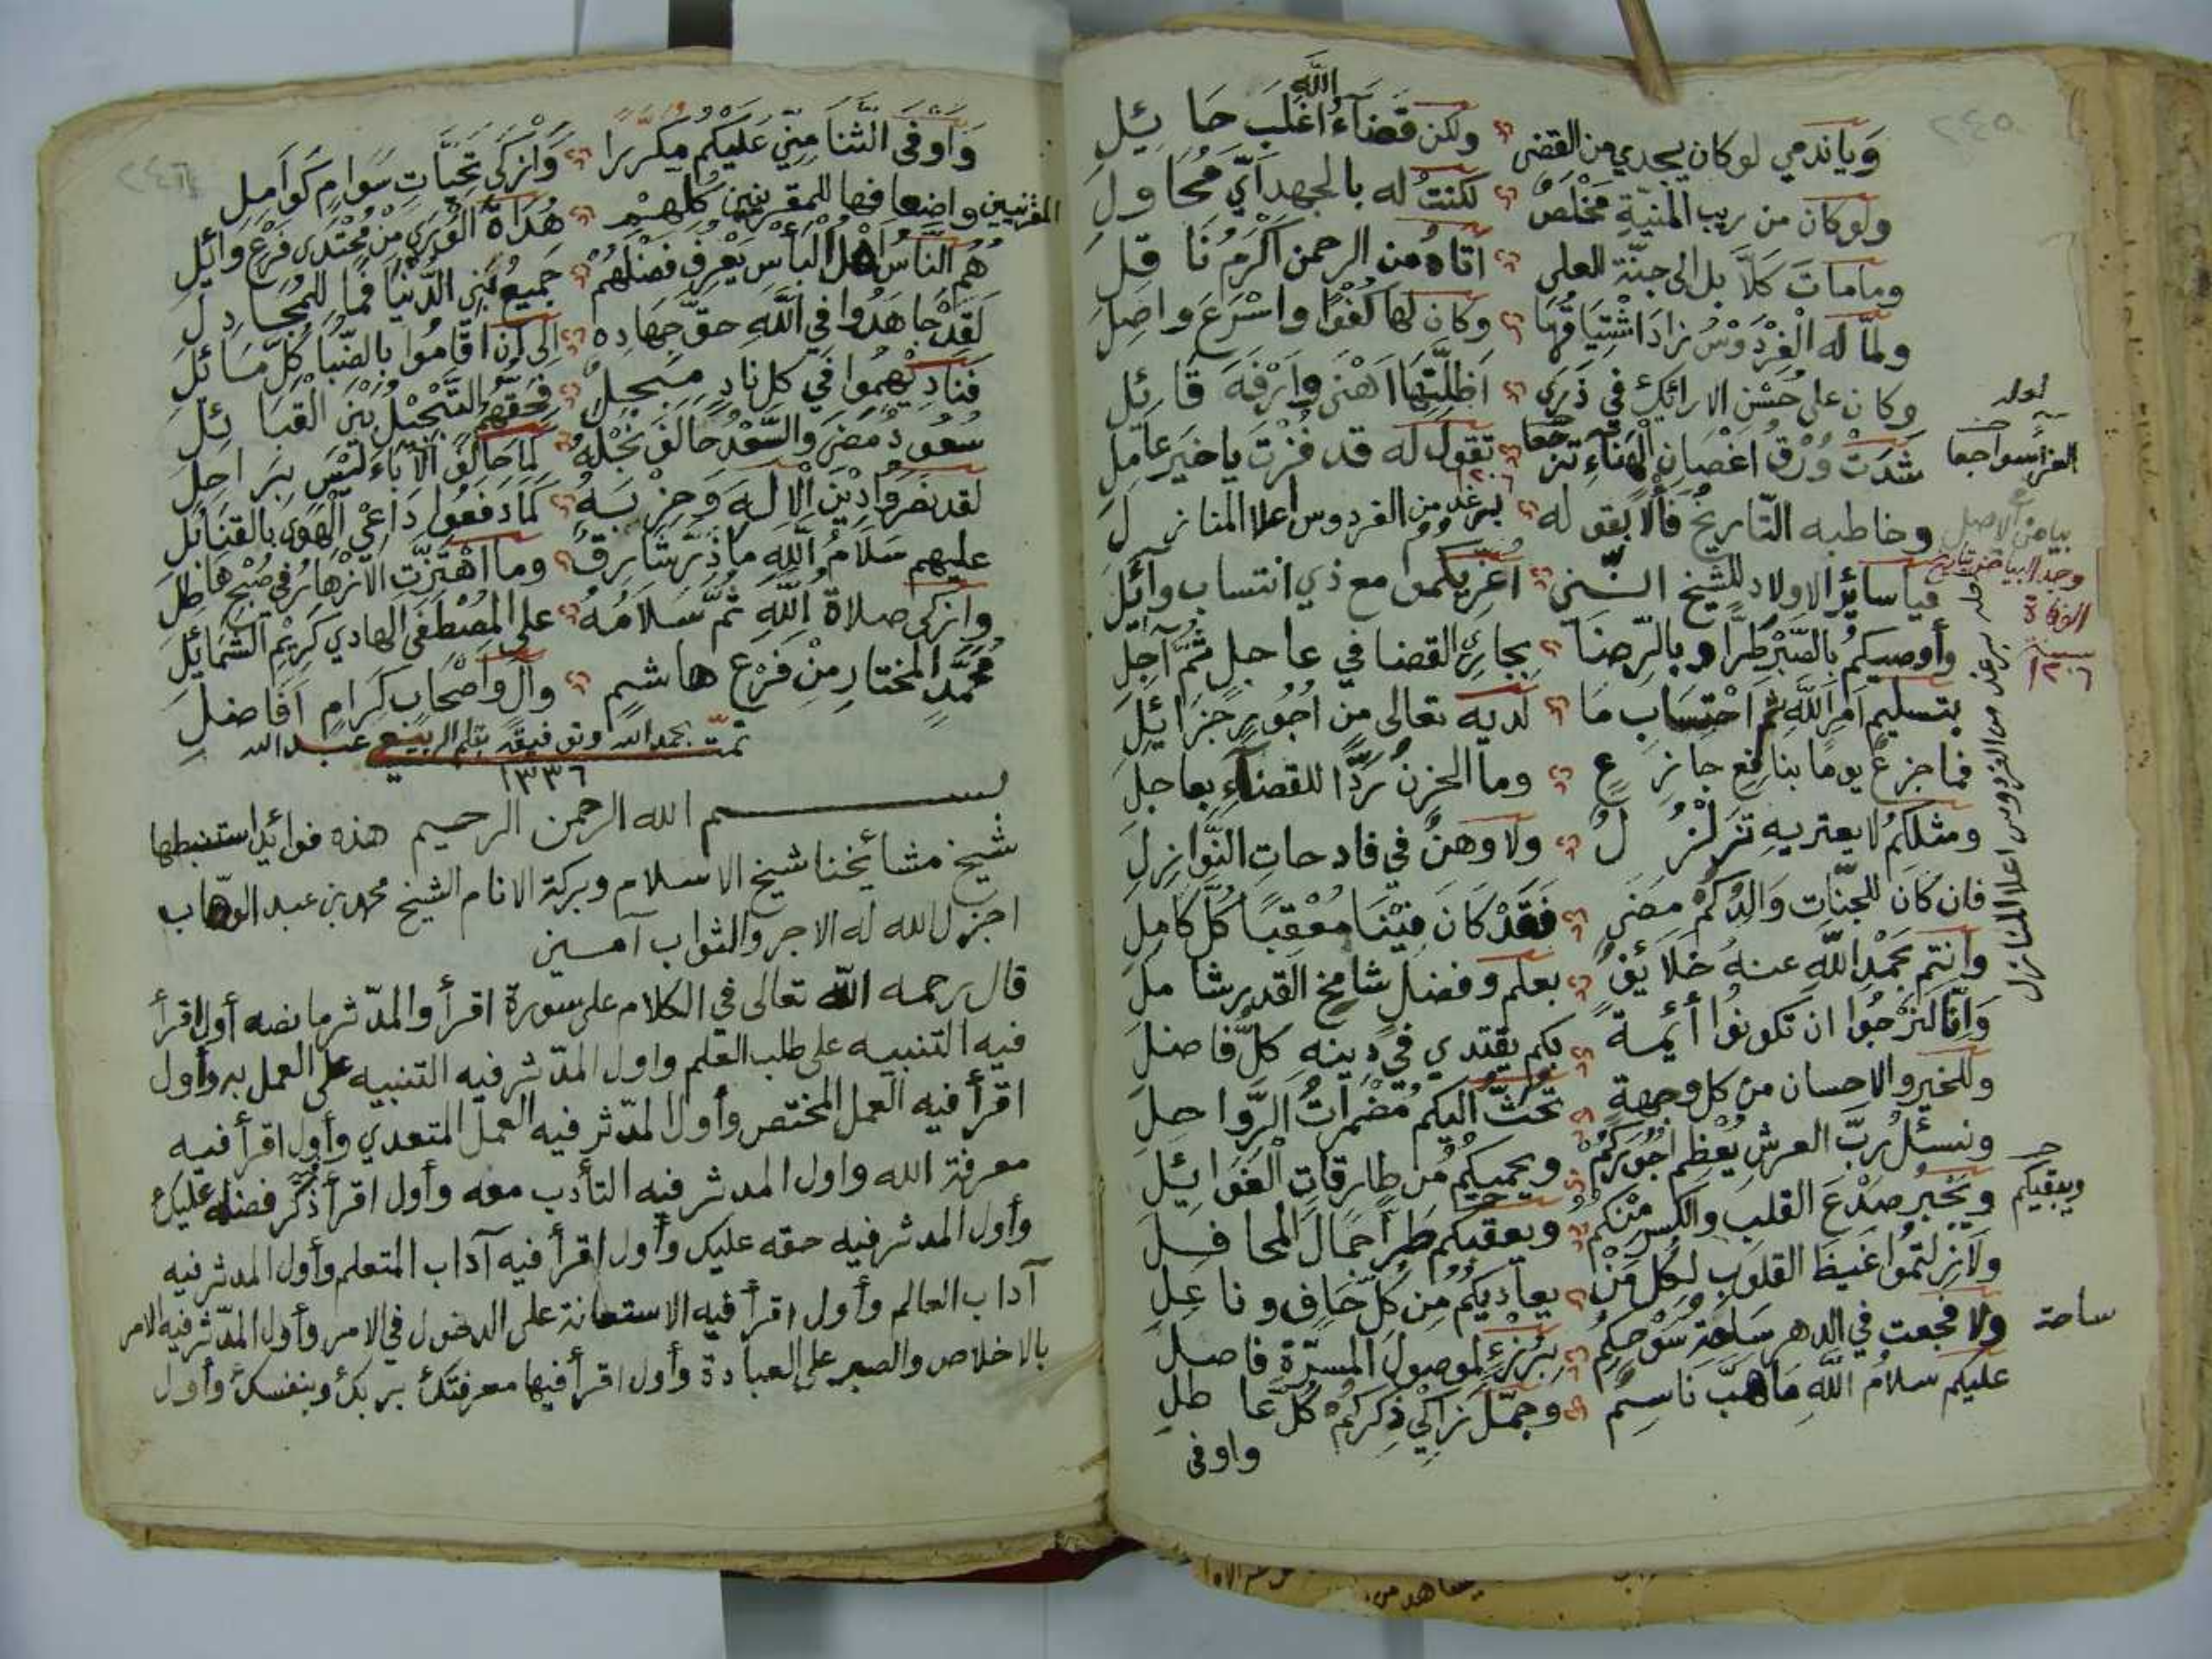 ٢٤٥
وَيَاندمي لوكان يجدي من القضى ولكن قضاءُ الله اغلب حائِلِ
ولوكان من ريب المنيّة مَخْلَصٌ لكنتُ له بالجهد أيّ مُحَاولِ
وما مات كلّا بل الى جنّة العلى اتاه من الرحمن اكْرَمُ نَاقِلِ
ولمّا له الفِرْدَوْسُ زادَ اشْتِيَاقُهَا وكان لها كُفْوًا واسْرَعَ واصِلِ
وكان على حُسْنِ الارائكِ في ذَرَى اَظِلَّتِهَا اَهْنَى وَاَرْفَهَ قَائِلِ
شَدَتْ وُرْقُ اغصانِ الهَنَاءِ تقول له قد فُزْتَ ياخيرَ عَامِلِ
وخاطبه التّاريخُ فَألًا بقوله برغد من الفردوس اعلا المنازلِ
١٢٠٦
بياض في الاصل
وجد البياض بتاريخ
الوفاة
سنة
١٢٠٦
حله برغد من الفردوس اعلا المنازل
فيا سائِرَ الاولاد للشيخ انّني اُعَزِّيكموا مع ذي انتساب وآئِلِ
وأُوصيكمُ بالصَّبْرِ طُرًّا وبالرّضَا بجاري القضا في عاجلٍ ثُمَّ آجِلِ
بتسليم امرِ اللّهِ ثم احْتِسَابِ مَا لديه تعالى من اُجُورٍ جَزَائِلِ
فما جزعٌ يومًا بنافعِ جازعٍ وما الحزنُ رَدًّا للقضاءِ بعاجلِ
ومثلكمُ لا يعتريهِ تَزَلْزُلٌ ولا وهنٌ في فادحاتِ النَّوَازِلِ
فان كان للجنّاتِ وَالِدُكُمْ مضى فَقَدْ كَانَ فِيْنَا مُعْقِبًا كُلَّ كَامِلِ
وانتم بحمدِ اللّهِ عنهُ خلائِفٌ بعلمٍ وفضلٍ شامخِ القدرِ شاملِ
وَاِنّا لنَرْجُوا ان تكونُوا أئِمةً بكم يقتدي في دِينِهِ كلُّ فاضلِ
وللخير والاحسان من كل وجهةٍ تُحَثُّ اليكم مُضْمَرَاتُ الرَّواحلِ
ونسئلُ ربَّ العرشِ يُعْظِمْ اُجُورَكُمْ ويحميكُمُ من طارقاتِ الغَوائِلِ
ويَجْبُر صَدْعَ القلب والكسرِ مِنْكُمُ ويعقبكم طُرًّا جَمَالَ المحافلِ
ويبقيكم
ولازلتمُوا غيظَ القلوبِ لكل مَنْ يعاديكُمُ مِن كلّ حَافٍ وناعِلِ
ولا فجعت في الدهر ساحة سُوْحِكُمْ بِرُزْءٍ لموصولِ المسرّةِ فاصلِ
ساحة
عليكم سلامُ اللّهِ مَا هَبَّ نَاسِمٌ وجمّلَ زاكِي ذِكركُمْ كُلَّ عاطلِ
واوفى
٢٤٦
وَاَوفى الثّنَا مِنّي عَلَيكُم مكررا وَازكى تحيَّاتٍ سَوامٍ كَوامِلِ
واضعافها للمقرنيين كُلهِمْ هُدَاةُ الوَرى مِنْ مُحْتَدى فَرْعِ وائِلِ
المقرنيين
هُمُ النَّاسُ اَهْلُ البأسِ يَعْرِفُ فضْلَهُمْ جَمِيعُ بَنِي الدُّنْيَا فَمَا لِلْمُجَادِلِ
لَقَدْ جَاهَدُوا في اللّهِ حقَّ جِهادِه الى اَنْ اقَامُوا بالضّبا كُلّ مَائِلِ
فناديْهُموا في كل نادٍ مبجلٌ فَحَقّهُمُ التَّبْجِيْلُ بَيْنَ القَبَائِلِ
سُعُودٌ مضى والسَّعْدُ حَالَفَ نَجْلَهُ كَمَا حَالَفَ الآبَاءَ لَيْسَ بِرَاحِلِ
لقد نصَرُوا دِيْنَ الاِلَهِ وَحِزْبَهُ كَمَا دَفَعُوا دَاعِي الهَوى بالقنَابلِ
عليهم سَلَامُ اللّهِ مَا ذَرَّ شَارِقٌ وما اهْتَزَّتِ الاَزْهَارُ في صُبْحِ هَاطِلِ
وازكى صلاةُ اللّهِ ثمّ سَلَامُهُ على المُصْطَفَى الهادي كَرِيْمِ الشَّمَائِلِ
مُحمّدٍ المختارِ مِنْ فَرْعِ هاشمٍ وآلٍ واَصْحَابٍ كِرَامٍ اَفَاضلِ
تمّت بحمد الله وتوفيقه بقلم الربيعي عبد الله
١٣٣٦
بسم الله الرحمن الرحيم هذه فوائد استنبطها
شيخ مشائخنا شيخ الاسلام وبركة الانام الشيخ محمد بن عبد الوهّاب
اجزل الله له الاجر والثواب آمين
قال رحمه الله تعالى في الكلام على سورة اقرأ والمدّثر ما نصه أول اقرأ
فيه التنبيه على طلب العلم واول المدّثر فيه التنبيه على العمل به وأول
اقرأ فيه العمل المختص وأول المدّثر فيه العمل المتعدي وأول اقرأ فيه
معرفة الله واول المدثر فيه التأدب معه وأول اقرأ ذكر فضله عليك
وأول المدثر فيه حقه عليك وأول اقرأ فيه آداب المتعلم وأول المدثر فيه
آداب العالم وأول اقرأ فيه الاستعانة على الدخول في الامر وأول المدّثر فيه الامر
بالاخلاص والصبر على العبادة وأول اقرأ فيها معرفتك بربك وبنفسك وأول